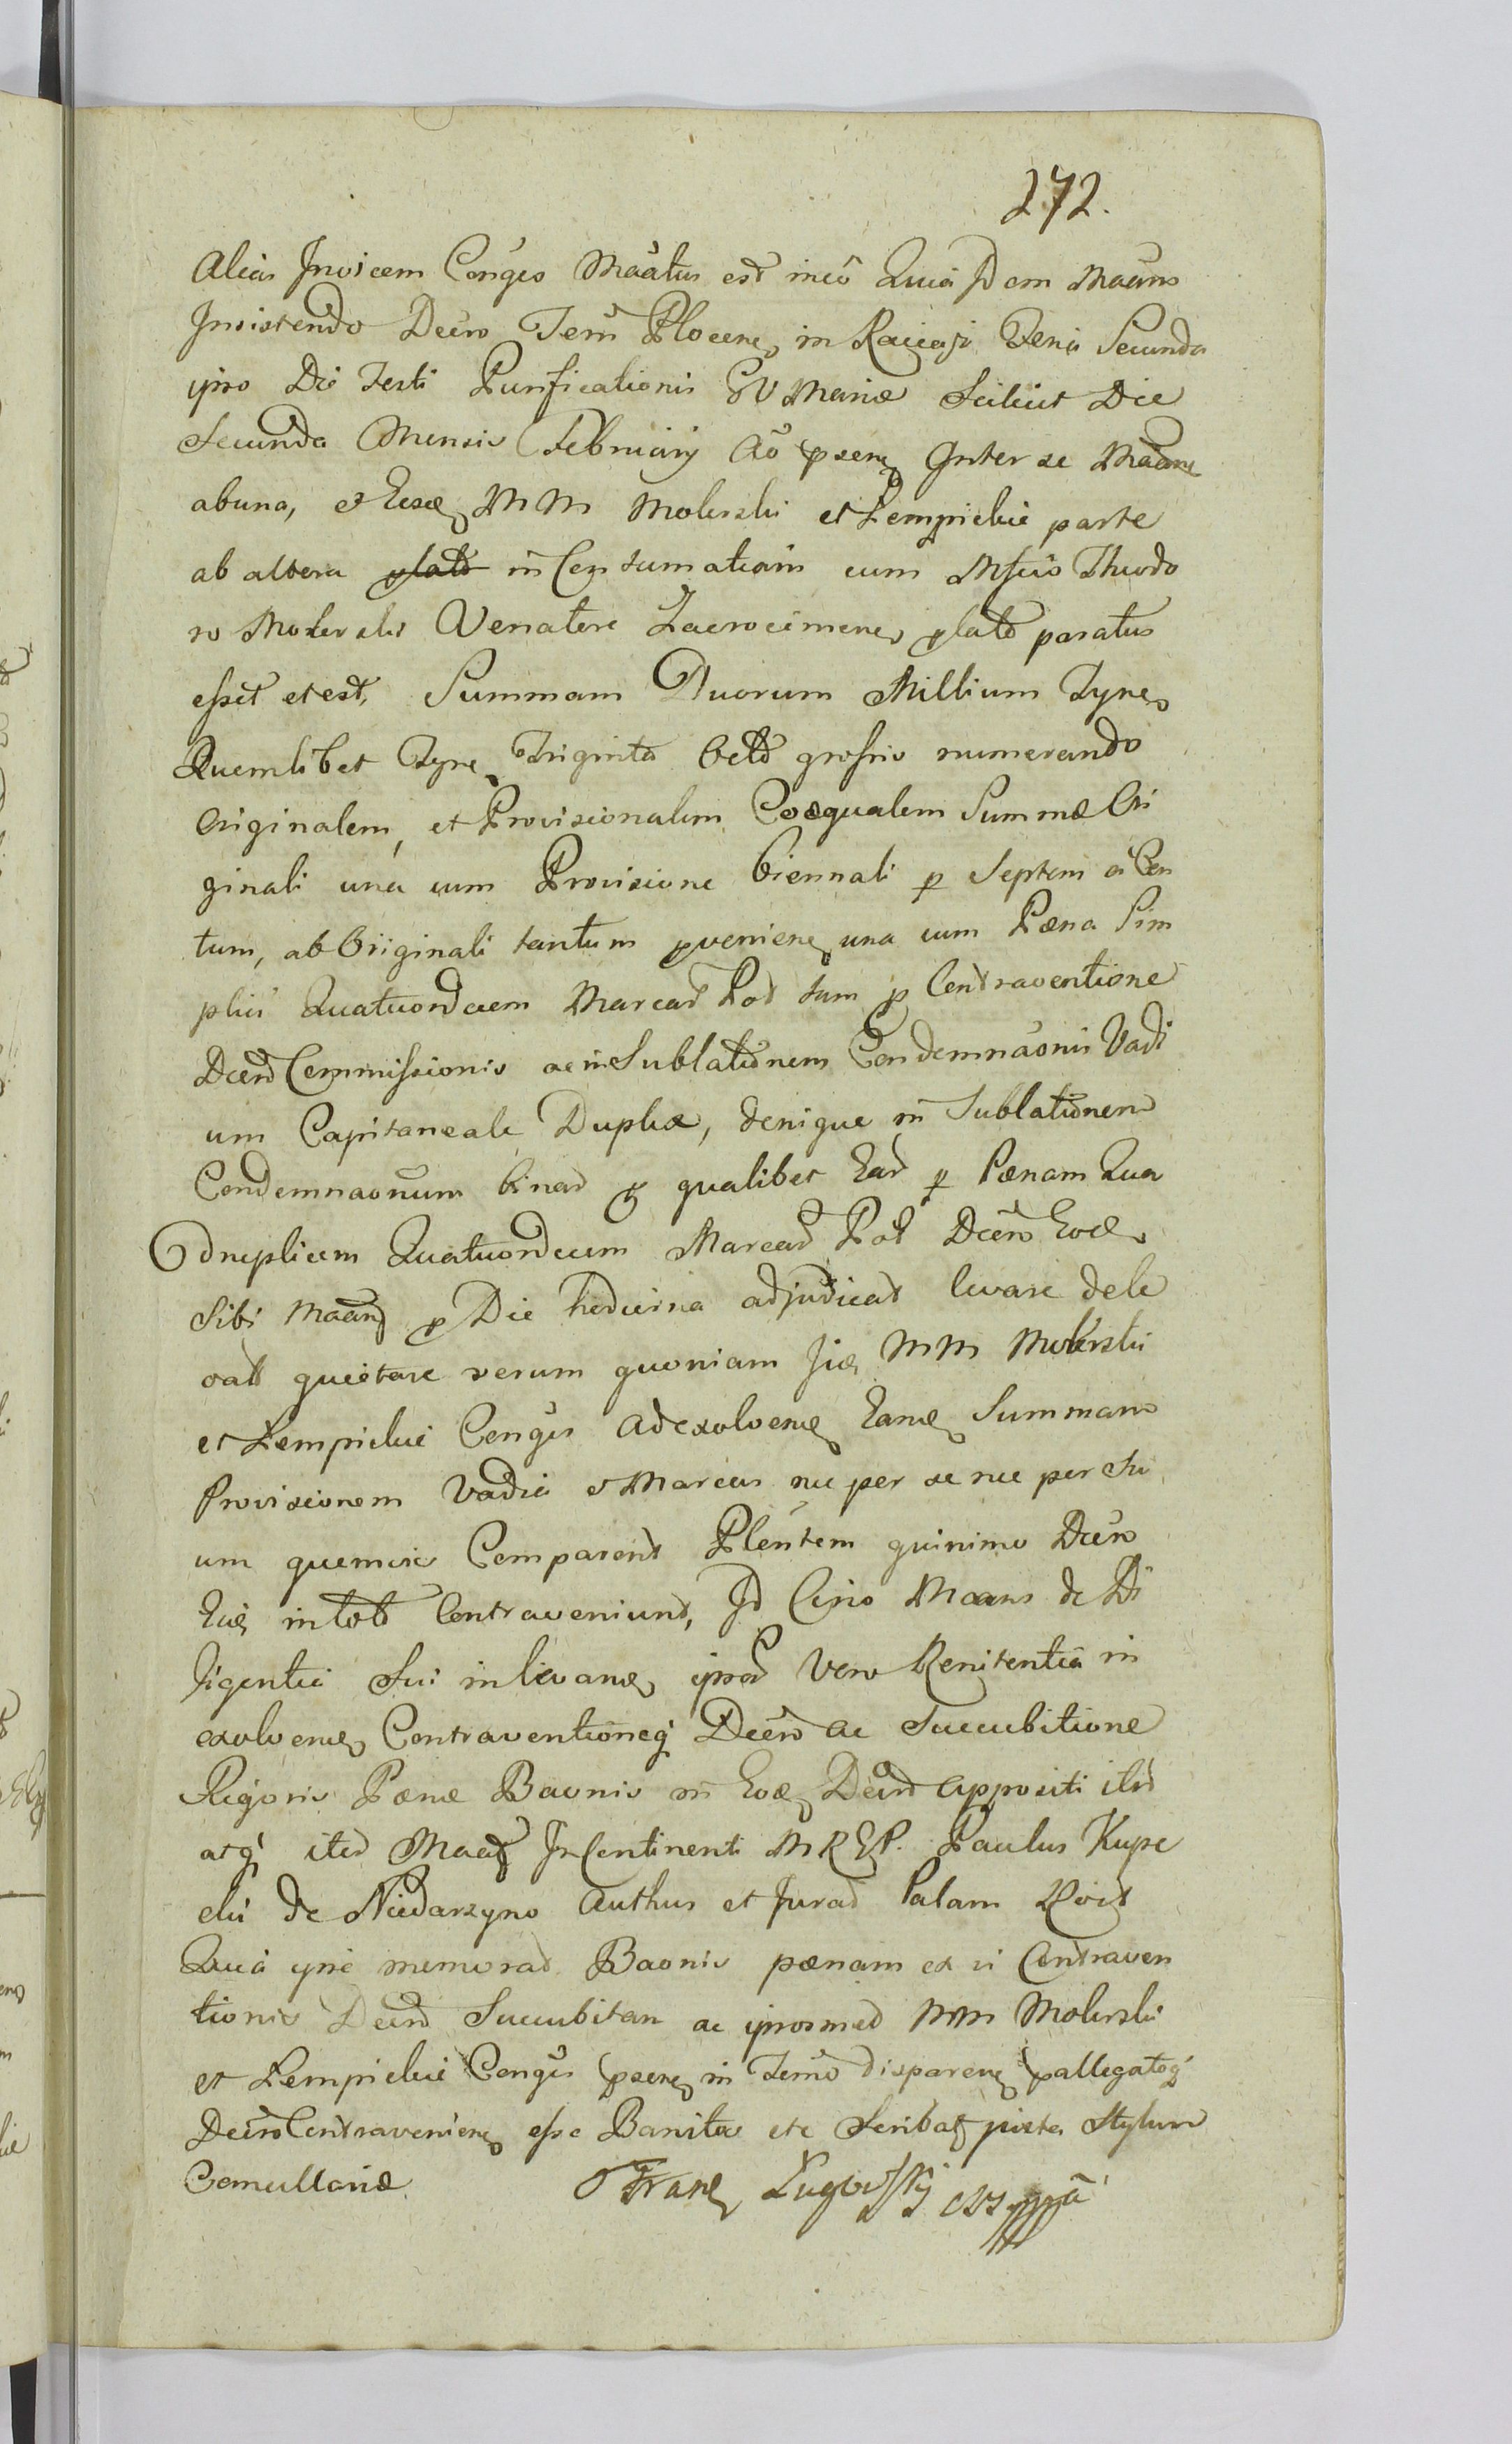 272.
Alias Invicem Conges Maatus est ineo Quia Idem Maans
Insistendo Decro Terri Plocen in Raciąsz Feria Secunda
ipso Die Festi Purificationis BV Mariæ Scilicet Die
Secunda Mensis February Ao psen Inter se Maane
abuna, et Eosd MM Molerski et Lempickie parte
ab altera plato in Contumatiam cum Msco Theodo
ro Molerski Venatore Zacrocimen plato paratus
esset et est, Summam Duorum Millium Tynf
Quemlibet Tynf Triginta Octo grossis numerando
Originalem, et Provisionalem Coæqualem Summæ Ori
ginali una cum Provisione biennali p Septem a Cen
tum, ab Originali tantum pvenien una cum Pæna Sim
plici Quatuordecem Marcar Pol tum p Contraventione
Decro Commissionis ac in Sublationem Condemnaonis Vadi
um Capitaneale Duplex, denique in Sublationem
Condemnaonum binar p qualibet Ear p Pænam Qua
druplicem Quatuordecem Marcar Pol Decro Eod
Sibi Maan p Die hodierna adjudicat levare dele
vatt quietare verum quoniam Iid MM Molerski
et Lempickie Conges ad exolven Eand Summam
Provisionem Vadia et Marcas nec per se nec per Su
um quemvis Comparent Plentem quinimo Decro
Eid in toto Contraveniunt, Id Circo Maans de Di
ligentia Sui in levand ipsor Vero Renitentia in
exolvend Contraventioneq Decro ac Succubitione
Rigoris Pænæ Baonis in Eod Decro appositi itur
atq iter Maat In Continenti MRGP. Paulus Kupe
cki de Niedarzyno Authus et Jurat Palam Rcit
Quia ipse memorat Baonis pænam ex vi Contraven
tionis Decro Succubitam ac ipsosmet MM Molerski
et Lempickie Conges psen in Termo disparen pallegatoq
Decro Contravenien esse Banitos etc Scribat juxta Stylum
Cancellariæ
Franc Ługowskj